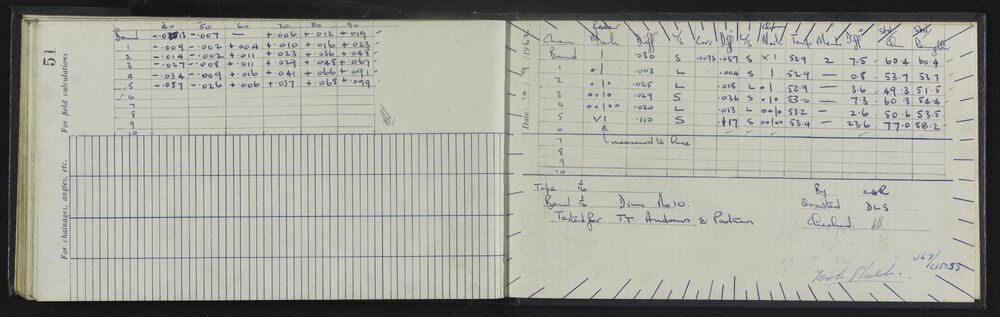 51
For field calculations
40 50 60 70 80 90
Band -.013 -.007 — +.006 +.012 +.019
1 -.009 -.002 +.004 +.010 +.016 +.023
2 -.014 -.002 +.011 +.023 +.036 +.048
3 -.027 -.008 +.011 +.029 +.048 +.067
4 -.034 -.009 +.016 +.041 +.066 +.091
5 -.057 -.026 +.006 +.037 +.068 +.099
6
7
8
9
For chainages, angles, etc.
Date: 10 9 1962
Chain Mark Diff L/S Corr Diff L/S Mark Temp Mean Diff Std Length
Band .030 S .0075 .037 S x 1 52.9 2 7.5 60.4 60.4
1 01 .003 L .004 S 1 52.9 — 0.8 53.7 53.7
2 010 .025 L .018 L 01 52.9 — 3.6 49.3 51.5
3 0010 .029 S .036 S 010 53.0 — 7.3 60.3 54.4
4 00100 .020 L .013 L 0010 53.2 2.6 50.6 53.5
5 V1 .110 S .117 S 00100 53.4 — 23.6 77.0 58.2
6
7 measured to here
8
9
10
Tape 1/16 By CAR
Band 1/16 Drum No 10. Assisted DLS
Tested for T.T. Andrews & Partners Checked.
J62/